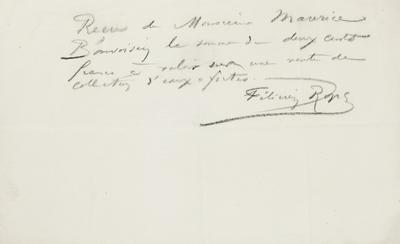 Recu de Monsieur Maurice
Bonvoisin la somme de deux cents
francs à valoir sur une vente de
collection d'eaux-fortes.
Félicien Rops